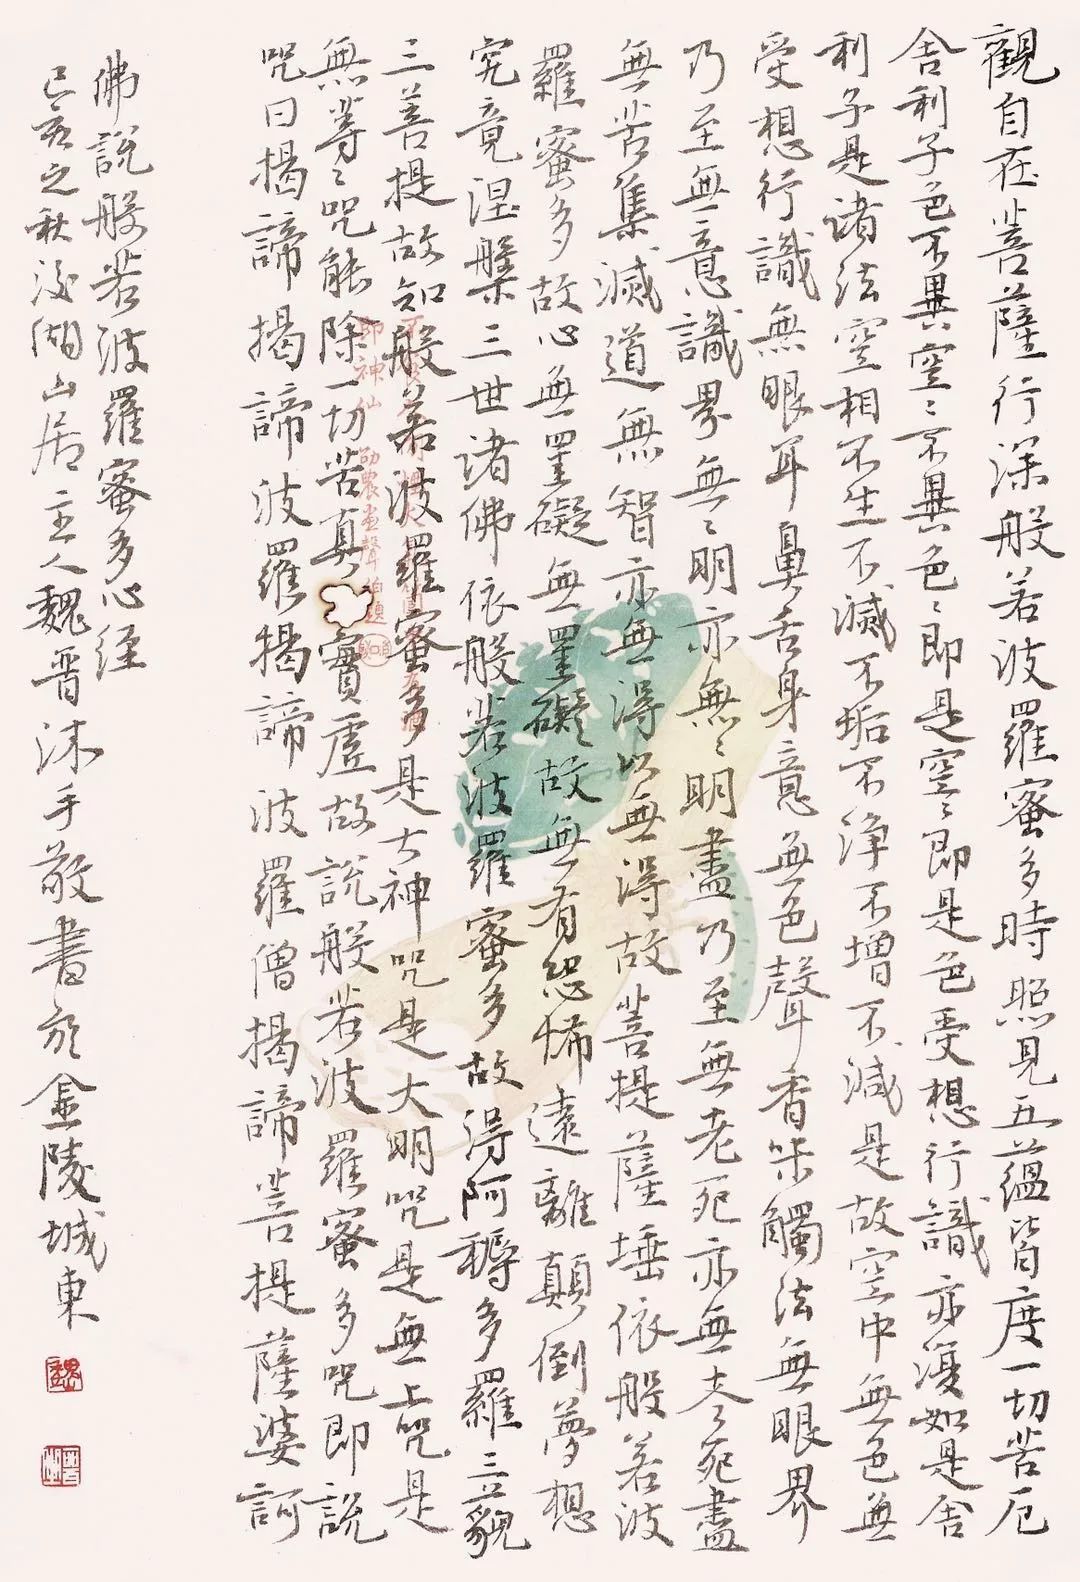 觀自在菩薩行深般若波羅蜜多時照見五蘊皆度一切苦厄
舍利子色不異空〻不異色〻即是空〻即是色受想行識亦復如是舍
利子是諸法空相不生不滅不垢不淨不增不減是故空中無色無
受想行識無眼耳鼻舌身意無色聲香味觸法無眼界
乃至無意識界無〻明亦無〻明盡乃至無老死亦無老死盡
無苦集滅道無智亦無得以無得故菩提薩埵依般若波
羅蜜多故心無罣礙無罣礙故無有恐怖遠離顛倒夢想
究竟涅槃三世諸佛依般若波羅蜜多故得阿耨多羅三藐
三菩提故知般若波羅蜜多是大神咒是大明咒是無上咒是
無等〻咒能除一切苦真實虛故說般若波羅蜜多咒即說
咒曰揭諦揭諦波羅揭諦波羅僧揭諦菩提薩婆訶
佛說般若波羅蜜多心經
己亥之秋後湖山居主人魏晋沐手敬書於金陵城東
即神仙